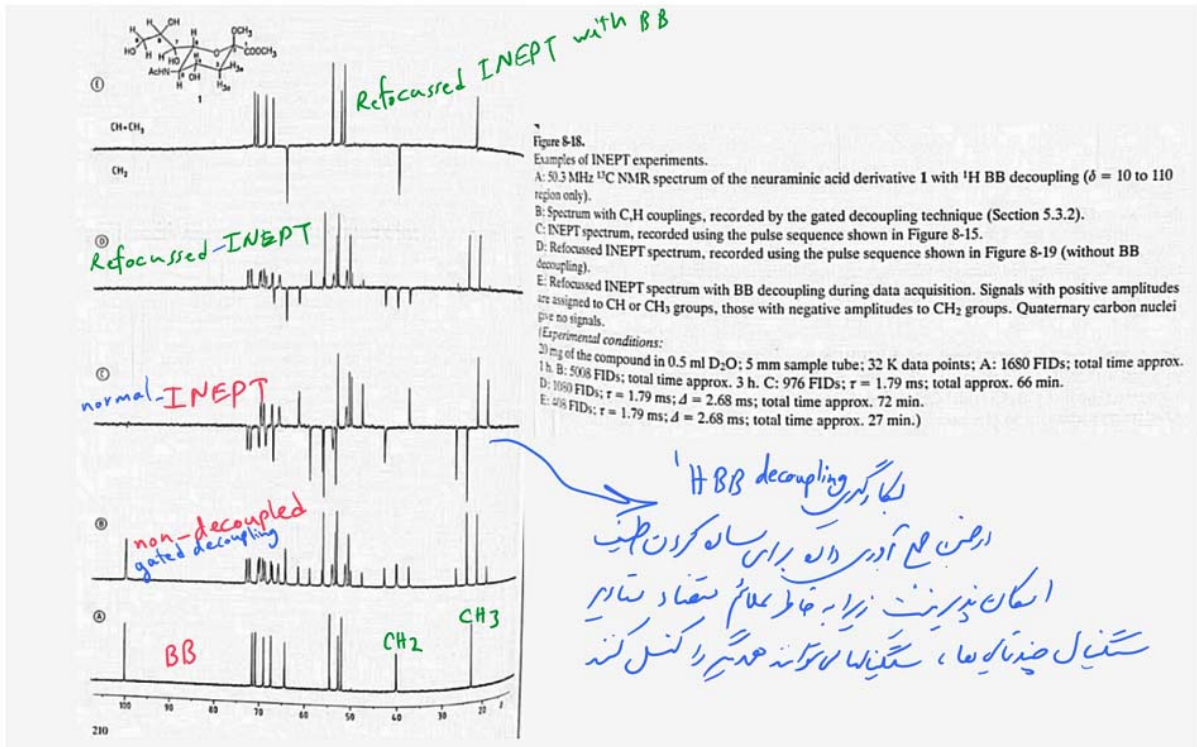 Refocussed INEPT with BB
CH+CH₃
CH₂
Refocussed-INEPT
normal-INEPT
non-decoupled
gated decoupling
BB
CH2
CH3
100 90 80 70 60 50 40 30 20
210
Figure 8-18.
Examples of INEPT experiments.
A: 50.3 MHz ¹³C NMR spectrum of the neuraminic acid derivative 1 with ¹H BB decoupling (δ = 10 to 110
region only).
B: Spectrum with C,H couplings, recorded by the gated decoupling technique (Section 5.3.2).
C: INEPT spectrum, recorded using the pulse sequence shown in Figure 8-15.
D: Refocussed INEPT spectrum, recorded using the pulse sequence shown in Figure 8-19 (without BB
decoupling).
E: Refocussed INEPT spectrum with BB decoupling during data acquisition. Signals with positive amplitudes
are assigned to CH or CH₃ groups, those with negative amplitudes to CH₂ groups. Quaternary carbon nuclei
give no signals.
(Experimental conditions:
20 mg of the compound in 0.5 ml D₂O; 5 mm sample tube; 32 K data points; A: 1680 FIDs; total time approx.
1 h. B: 5008 FIDs; total time approx. 3 h. C: 976 FIDs; τ = 1.79 ms; total approx. 66 min.
D: 1080 FIDs; τ = 1.79 ms; Δ = 2.68 ms; total time approx. 72 min.
E: FIDs; τ = 1.79 ms; Δ = 2.68 ms; total time approx. 27 min.)
بکارگیری ¹H BB decoupling
در حین جمع آوری داده برای ساده کردن طیف
امکان پذیر نیست زیرا به خاطر علائم متضاد
سیگنال چندتایی ها، سیگنالها می توانند همدیگر را کنسل کنند